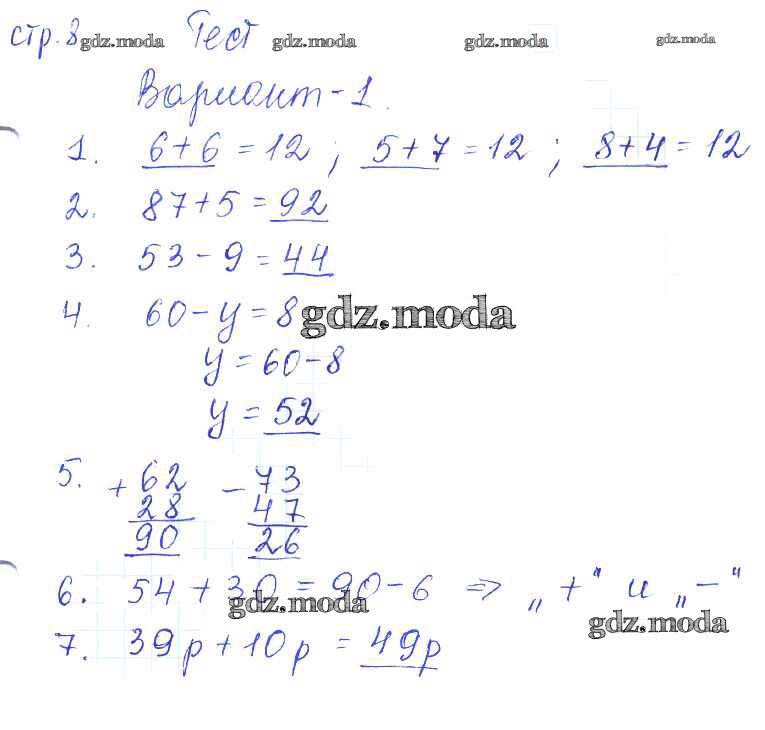 стр. 8 gdz.moda Тест gdz.moda gdz.moda gdz.moda
Вариант-1.
1. 6+6 = 12 ; 5+7 = 12 ; 8+4 = 12
2. 87+5 = 92
3. 53 - 9 = 44
4. 60 - y = 8 gdz.moda
y = 60 - 8
y = 52
5. + 62 - 73
28 47
90 26
6. 54 + 30 = 90 - 6 => „ + “ и „ - “
gdz.moda gdz.moda
7. 39р + 10р = 49р